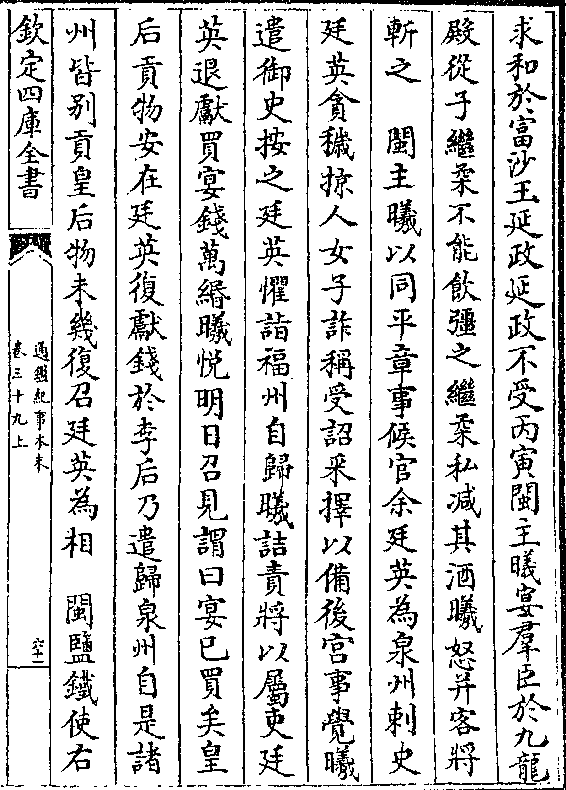 求和於富沙王延政延政不受丙寅閩主曦宴羣臣於九龍
殿從子繼柔不能飲彊之繼柔私減其酒曦怒并客將
斬之　閩主曦以同平章事候官余廷英為泉州刺史
廷英貪穢掠人女子詐稱受詔采擇以備後宫事覺曦
遣御史按之廷英懼詣福州自歸曦詰責將以屬吏廷
英退獻買宴錢萬緡曦悦明日召見謂曰宴已買矣皇
后貢物安在廷英復獻錢於李后乃遣歸泉州自是諸
州皆别貢皇后物未幾復召廷英為相　閩鹽鐵使右
欽定四庫全書
通鑑紀事本末
卷三十九上
六十一